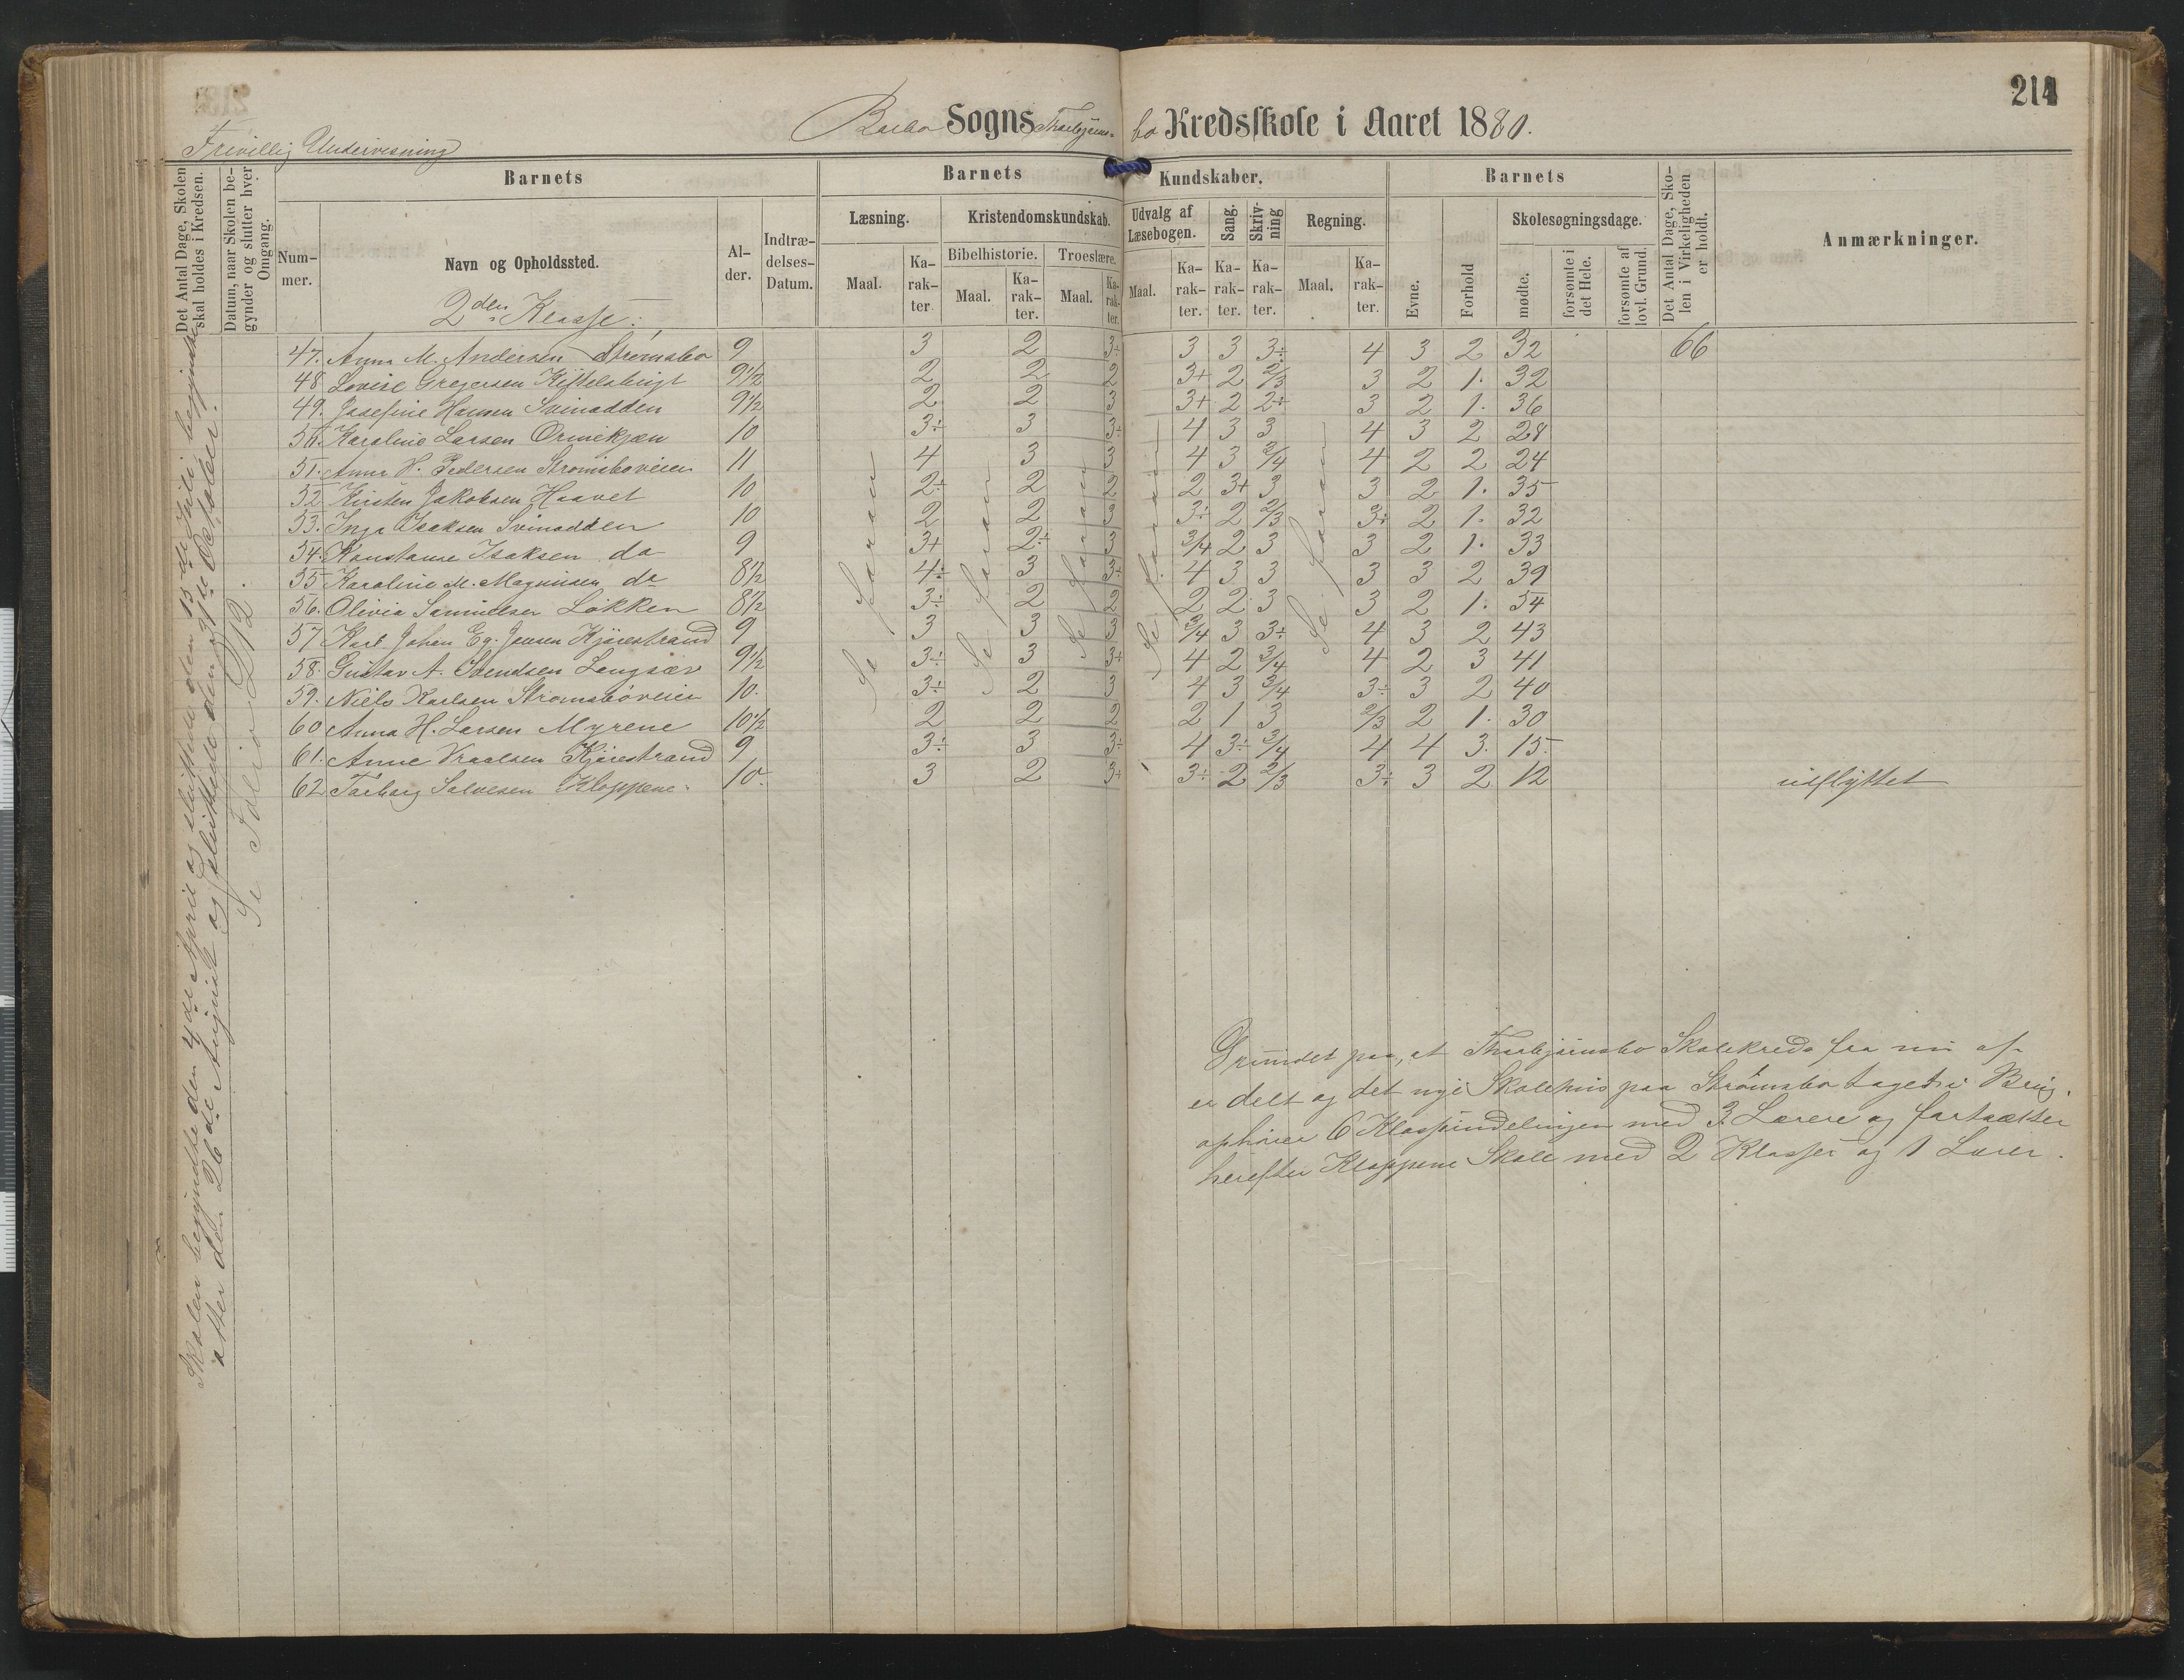 214
Barbo Sogns Thorbjørnsbo Kredsskole i Aaret 1880.
Frivillig Undervisning
Det Antal Dage, Skolen skal holdes i Kredsen.
Datum, naar Skolen begynder og slutter hver Omgang.
Barnets
Nummer.
Navn og Opholdssted.
Alder.
Indtrædelses-Datum.
Barnets Kundskaber.
Læsning.
Maal.
Karakter.
Kristendomskundskab.
Bibelhistorie.
Maal.
Karakter.
Troeslære.
Maal.
Karakter.
Udvalg af Læsebogen.
Maal.
Karakter.
Sang.
Karakter.
Skrivning
Karakter.
Regning.
Maal.
Karakter.
Barnets
Evne.
Forhold
Skolesøgningsdage.
mødte.
forsømte i det Hele.
forsømte af lovl. Grund.
Det Antal Dage, Skolen i Virkeligheden er holdt.
Anmærkninger.
2den Klasse:
47. Anna M. Andersen Strømsbo 9 3 2 3÷ 3 3 3÷ 4 3 2 32 66
48 Lovise Gregersen Kittelsbugt 9 1/2 2 2 2 3+ 2 2/3 3 2 1. 32
49. Josefine Hansen Svinodden 9 1/2 2 2 3 3+ 2 2÷ 3 2 1. 36
50. Karoline Larsen Ormekjæn 10 3÷ 3 3÷ 4 3 3 4 3 2 28
51. Anna H. Pedersen Strømsboveien 11 4 3 3 4 3 3/4 4 2 2 24
52 Kirsten Jakobsen Haavet 10 2÷ 2 2 2 3+ 3 3 2 1. 35
53. Inga Isaksen Svinodden 10 2 2 3 3÷ 2 2/3 3÷ 2 1. 32
54. Konstanse Isaksen do 9 3+ 2÷ 3 3/4 2 3 3 2 1. 33
55 Karoline M. Magnusen do 8 1/2 4÷ 3 3÷ 4 3 3 3 3 2 39
56. Olivia Samuelsen Løkken 8 1/2 3÷ 2 2 2 2 3 3 2 1. 54
57 Karl Johan Eg. Jensen Kjørestrand 9 3 3 3 3/4 3 3÷ 4 3 2 43
58. Gustav A. Svendsen Langsæv 9 1/2 3÷ 3 3+ 4 2 3/4 4 2 3 41
59. Niels Karlsen Strømsbøveien 10. 3÷ 2 3 4 3 3/4 3÷ 3 2 40
60 Anna H. Larsen Myrene 10 1/2 2 2 2 2 1 3 2/3 2 1. 30
61. Anne Knudsen Kjørestrand 9 3÷ 3 3÷ 4 3÷ 3/4 4 4 3. 15.
62 Torborg Salvesen Kloppene. 10. 3 2 3+ 3÷ 2 2/3 3÷ 3 2 12 udflyttet
Se foran
Se foran
Se foran
Se foran
Se foran
Skolen begyndte den 4de April og sluttede den 15de Juli; begyndte
atter den 26de August og sluttede den 31te Oktober.
Se Folio 212.
Grundet paa, at Thorbjørnsbo Skolekreds fra nu af
er delt og det nye Skolehus paa Strømsbo taget i Brug,
ophører 6 Klasseindelingen med 3 Lærere og fortsætter
herefter Kloppene Skole med 2 Klasser og 1 Lærer.